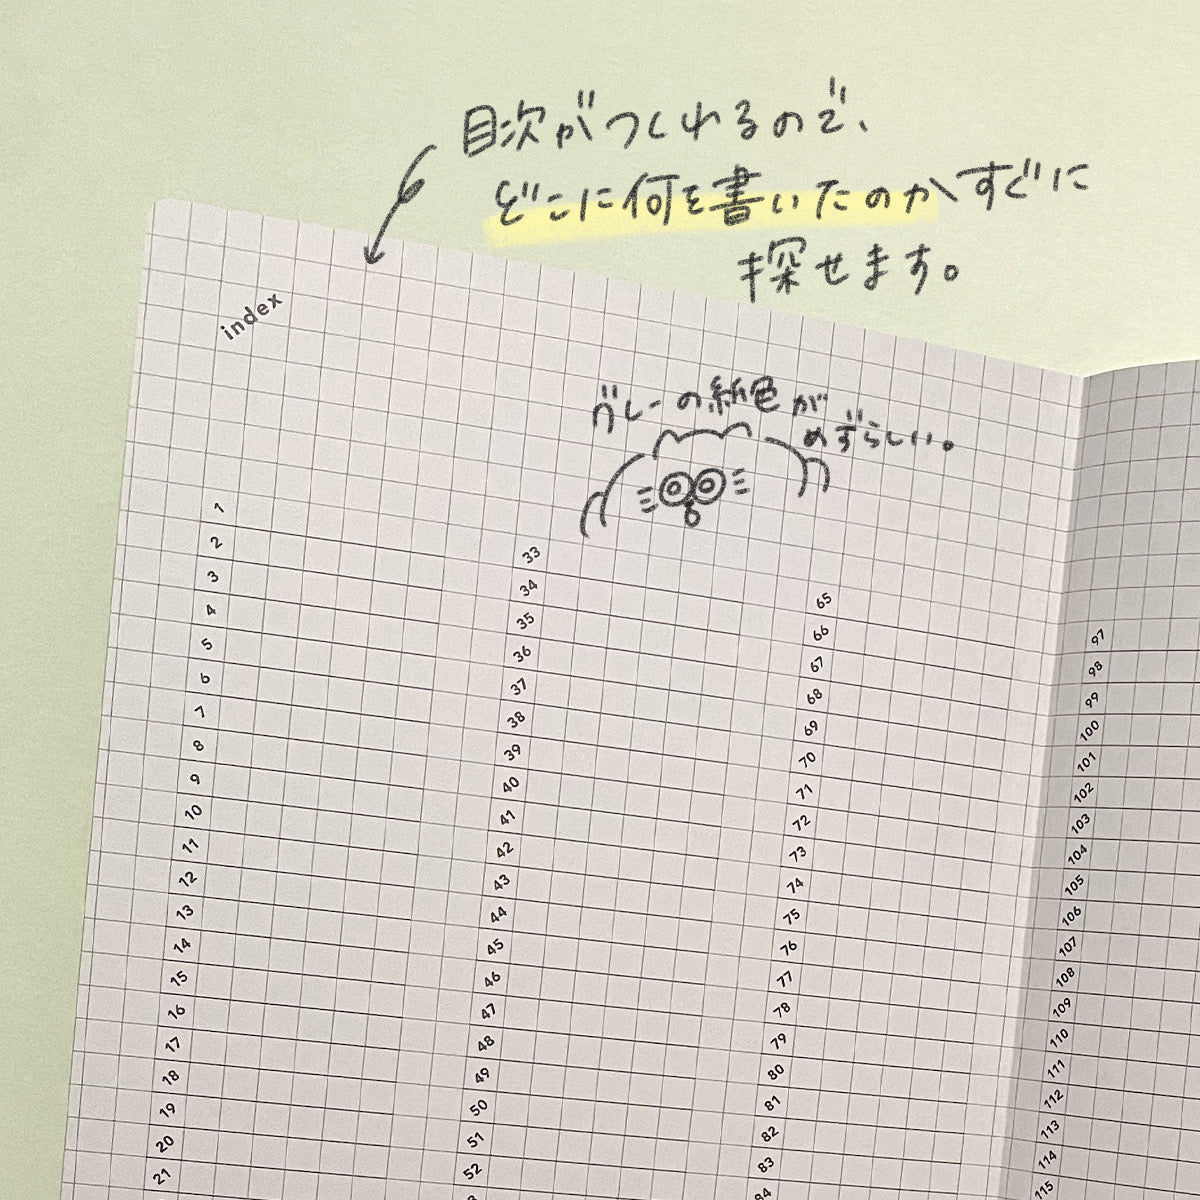 目次がつくれるので、
どこに何を書いたのかすぐに
探せます。
index
グレーの紙色が
めずらしい。
1
2
3
4
5
6
7
8
9
10
11
12
13
14
15
16
17
18
19
20
21
33
34
35
36
37
38
39
40
41
42
43
44
45
46
47
48
49
50
51
52
65
66
67
68
69
70
71
72
73
74
75
76
77
78
79
80
81
82
83
84
97
98
99
100
101
102
103
104
105
106
107
108
109
110
111
112
113
114
115